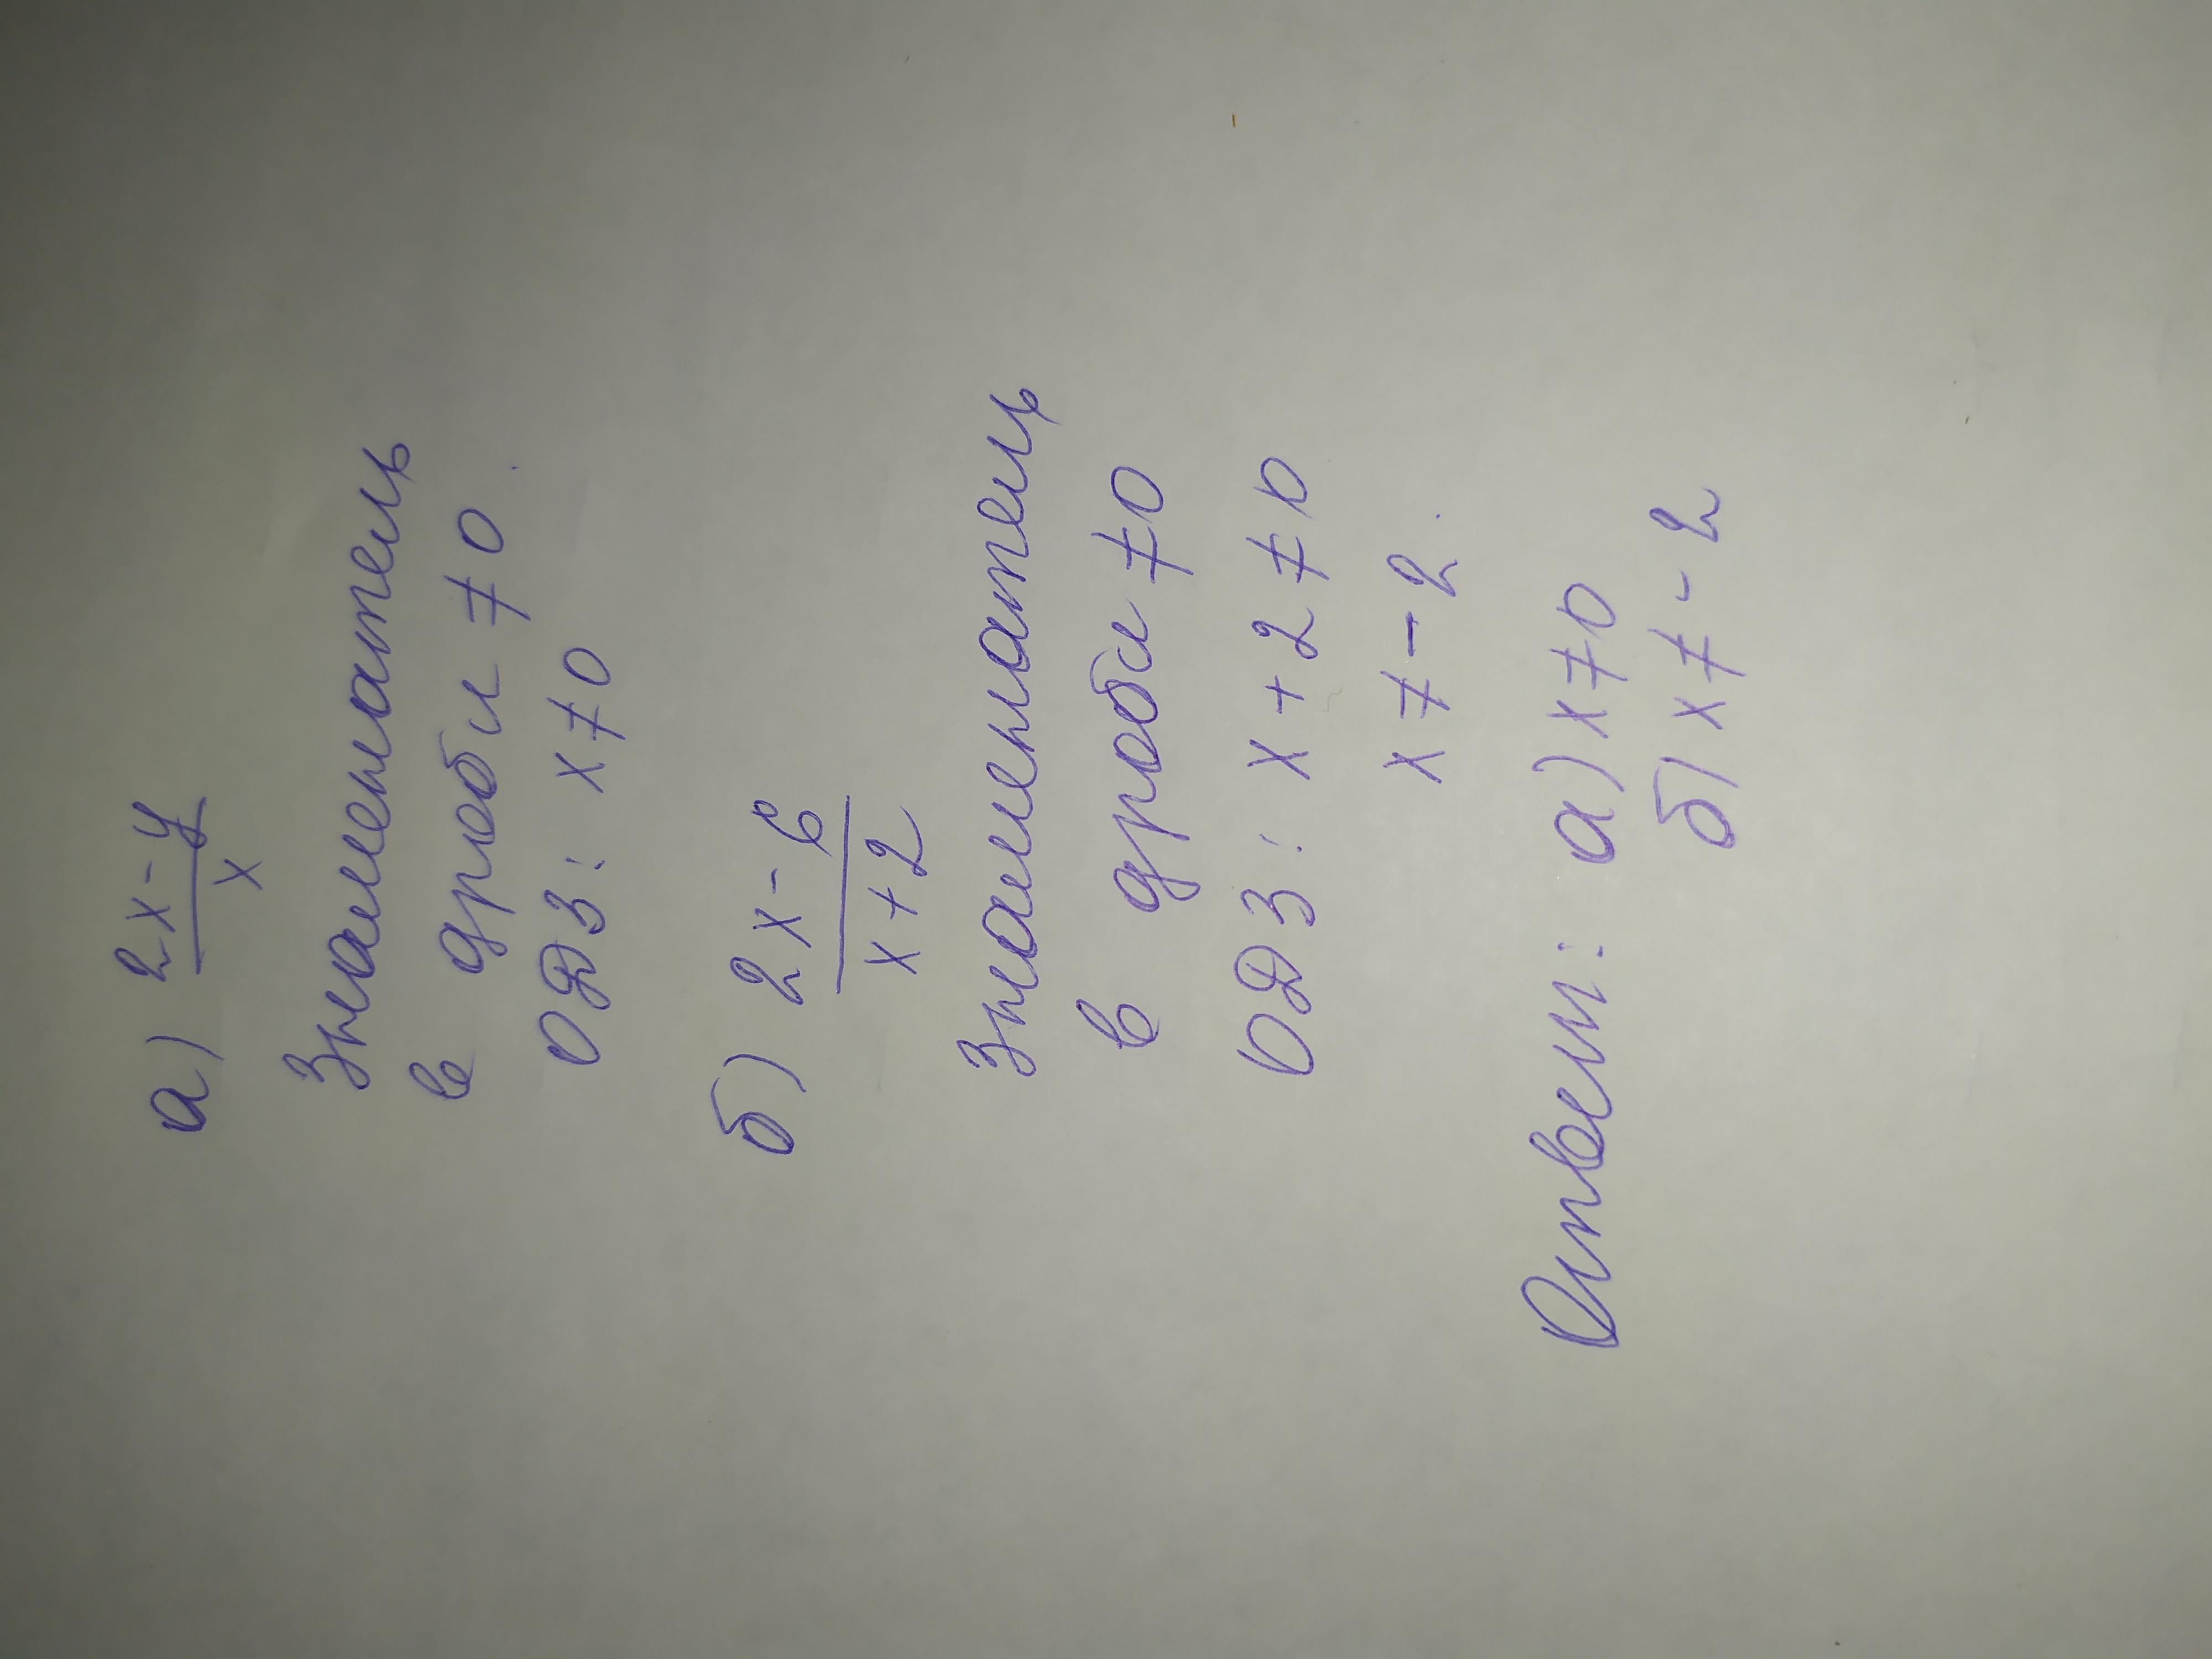 а) 2x-y
x
Знаменатель
в дроби ≠0
ОДЗ: x≠0
б) 2x-6
x+2
Знаменатель
в дроби ≠0
ОДЗ: x+2≠0
x≠-2
Ответ: а) x≠0
б) x≠-2